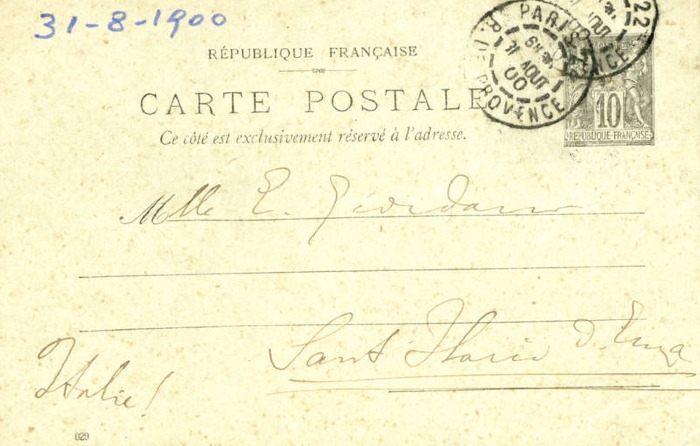 31-8-1900
RÉPUBLIQUE FRANÇAISE
CARTE POSTALE
Ce côté est exclusivement réservé à l'adresse.
PARIS 22
31 AOUT 00
R. DE PROVENCE
22
AOUT
10
REPUBLIQUE FRANÇAISE
Mlle E. Giordano
Sant Ilario d'Enza
Italie!
029